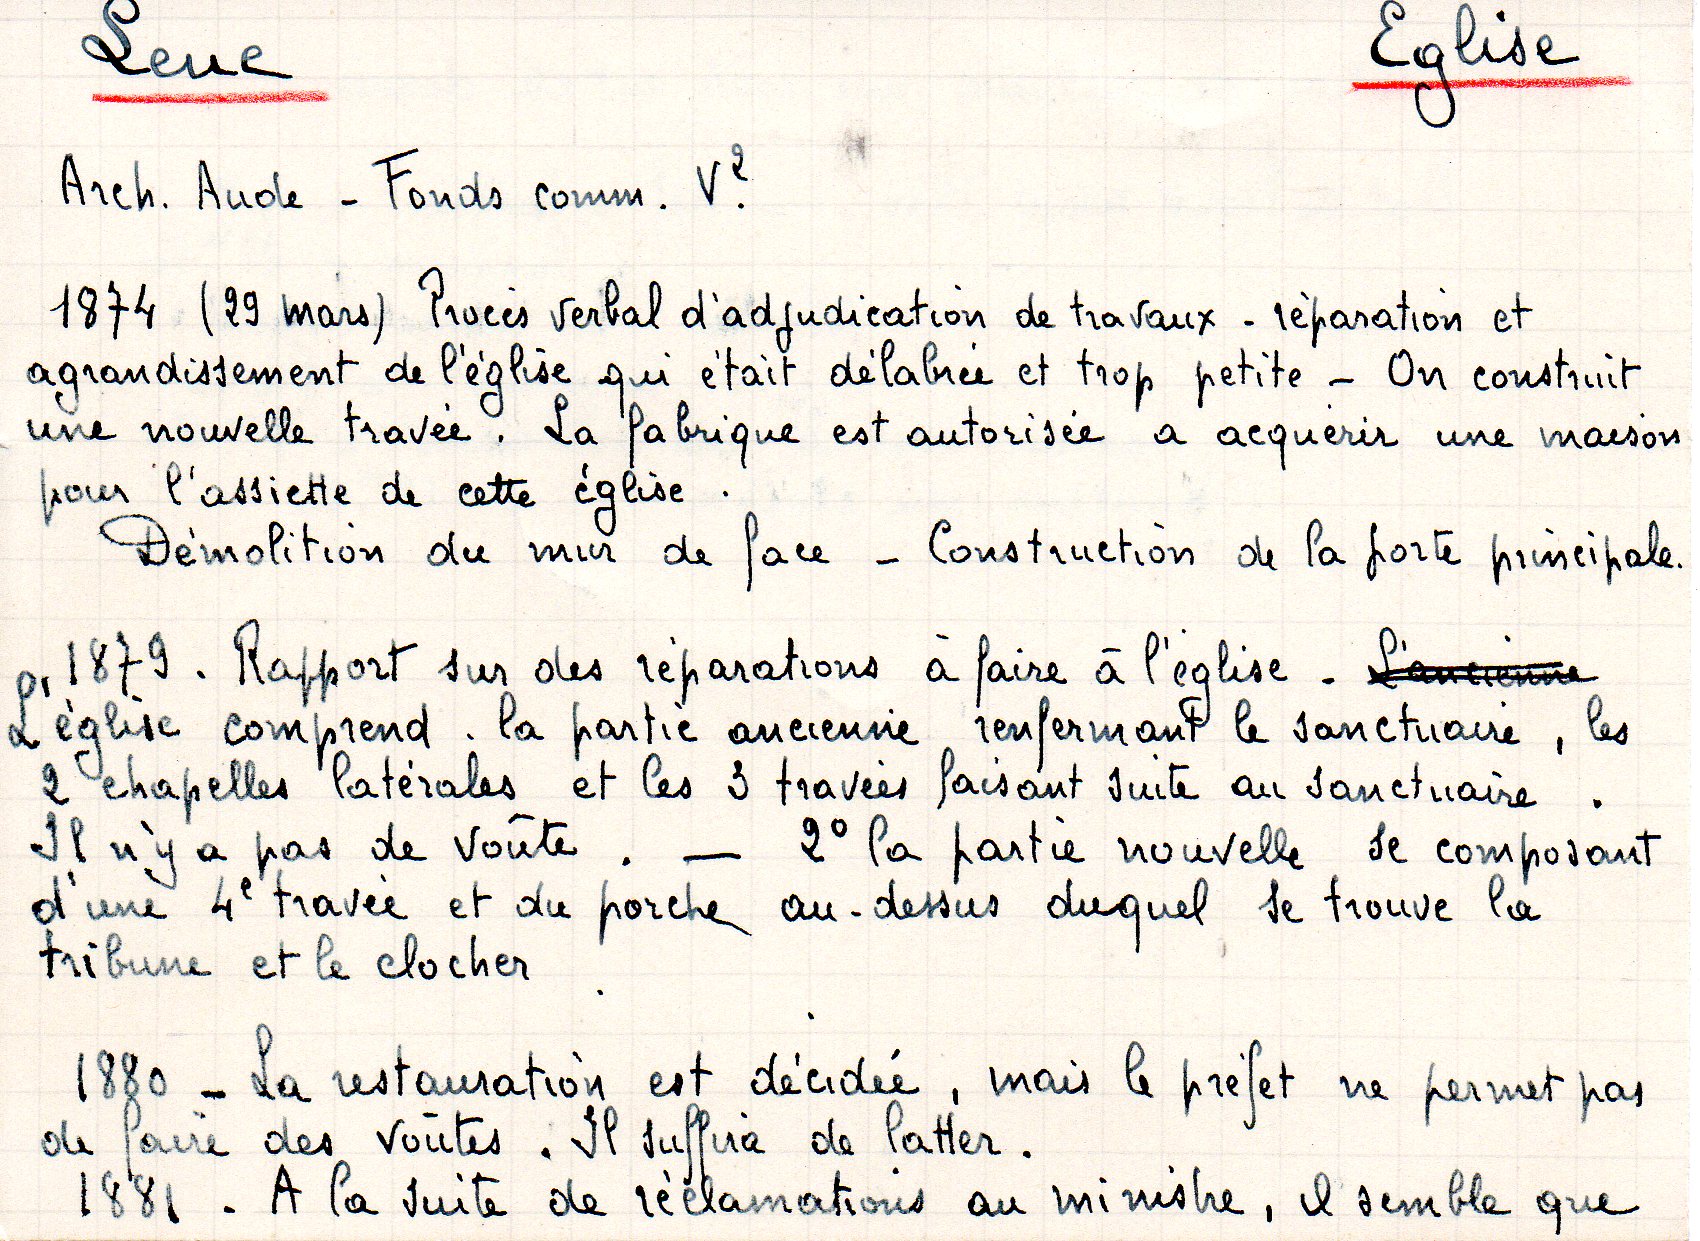 Leuc
Eglise
Arch. Aude - Fonds comm. V².
1874 (29 mars) Procès verbal d'adjudication de travaux - réparation et
agrandissement de l'église qui était délabrée et trop petite - On construit
une nouvelle travée. La fabrique est autorisée a acquérir une maison
pour l'assiette de cette église.
Démolition du mur de face - Construction de la porte principale.
1879. Rapport sur des réparations à faire à l'église - L'ancienne
L'église comprend. la partie ancienne renfermant le sanctuaire, les
2 chapelles latérales et les 3 travées faisant suite au sanctuaire.
Il n'y a pas de voûte. — 2° la partie nouvelle se composant
d'une 4e travée et du porche au-dessus duquel se trouve la
tribune et le clocher.
1880 - La restauration est décidée, mais le préfet ne permet pas
de faire des voûtes. Il suffira de latter.
1881. A la suite de réclamations au ministre, il semble que